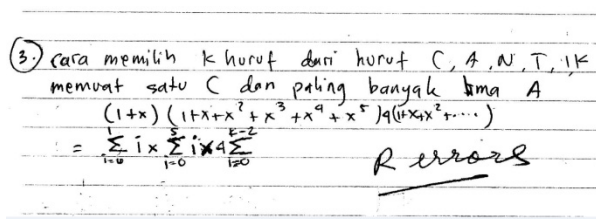 3. cara memilih k huruf dari huruf C, A, N, T, IK
memuat satu C dan paling banyak lima A
(1+x) (1+x+x² + x³ + x⁴ + x⁵ )4(1+x+x²+.....)
= Σ i x Σ i x 4 Σ
1 5 k-2
i=0 i=0 i=0
R errors